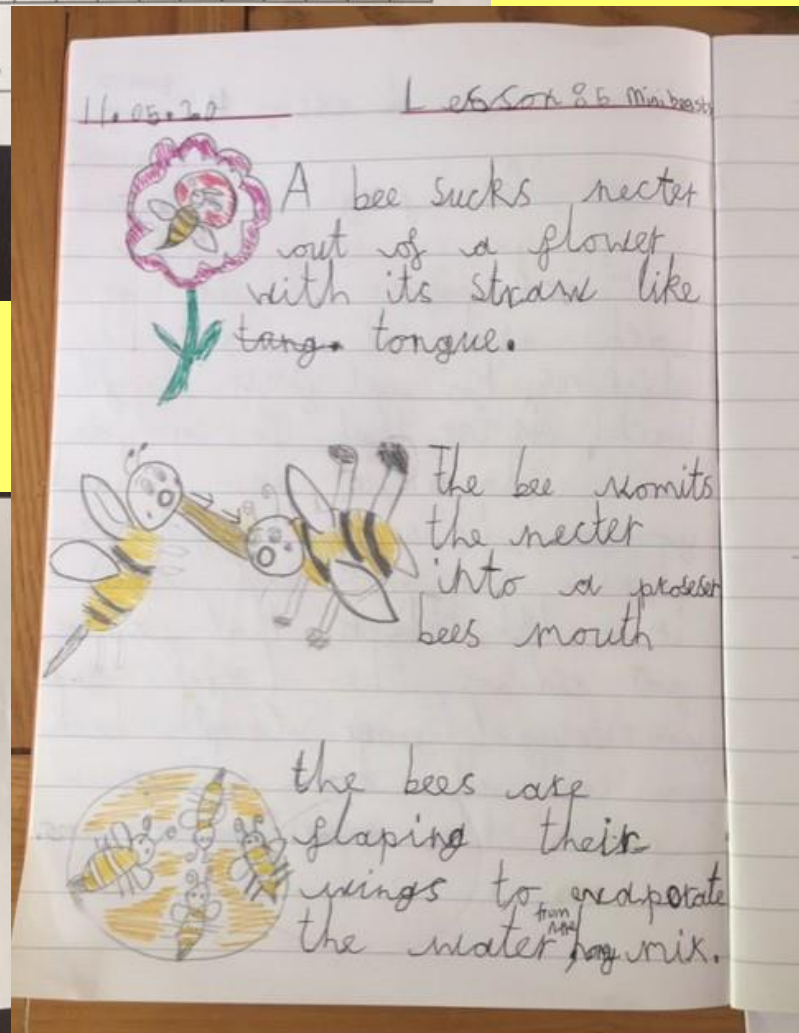 11.05.20 Lesson 85 Mini beasts
A bee sucks necter
out of a flower
with its straw like
tang. tongue.
The bee vomits
the necter
into a proseser
bees mouth
the bees are
flaping their
wings to evaporate
from the
the water hony mix.